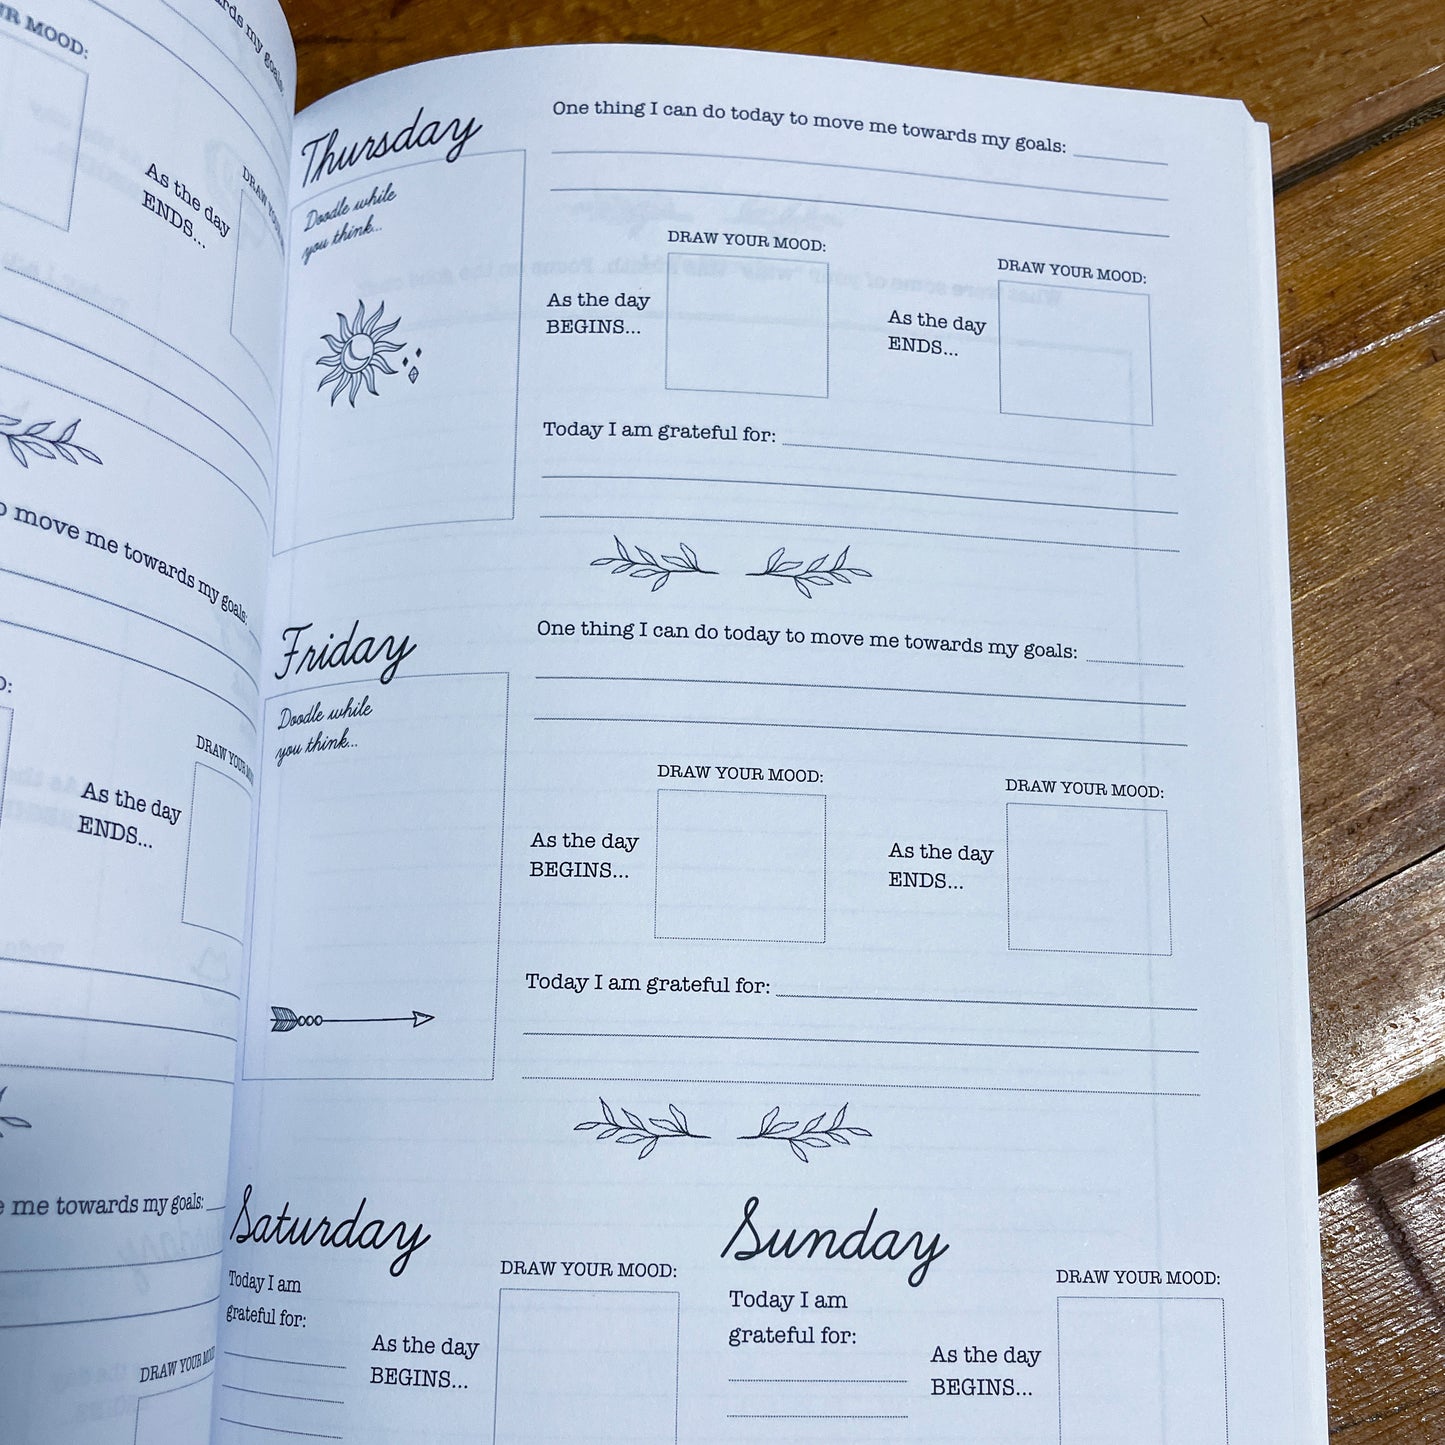 R MOOD:
rds my goals:
As the day
ENDS...
DRAW YOUR
to move me towards my goals:
DRAW YOUR MOO
As the day
ENDS...
me towards my goals:
DRAW YOUR MOOD
Thursday
Doodle while
you think...
One thing I can do today to move me towards my goals:
DRAW YOUR MOOD:
As the day
BEGINS...
DRAW YOUR MOOD:
As the day
ENDS...
Today I am grateful for:
Friday
Doodle while
you think...
One thing I can do today to move me towards my goals:
DRAW YOUR MOOD:
As the day
BEGINS...
DRAW YOUR MOOD:
As the day
ENDS...
Today I am grateful for:
Saturday
Today I am
grateful for:
DRAW YOUR MOOD:
As the day
BEGINS...
Sunday
Today I am
grateful for:
DRAW YOUR MOOD:
As the day
BEGINS...